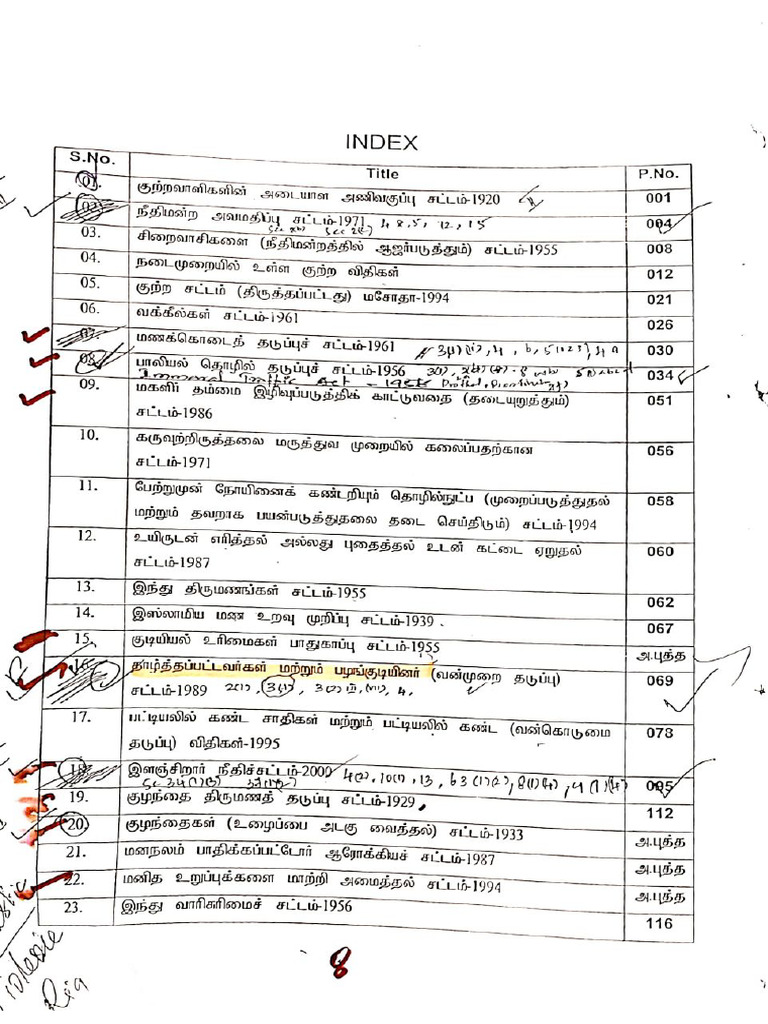 INDEX
S.No. Title P.No.
01. குற்றவாளிகளின் அடையாள அணிவகுப்பு சட்டம்-1920 001
02. நீதிமன்ற அவமதிப்பு சட்டம்-1971 4 8, 5, 12, 15 004
03. சிறைவாசிகளை (நீதிமன்றத்தில் ஆஜர்படுத்தும்) சட்டம்-1955 008
04. நடைமுறையில் உள்ள குற்ற விதிகள் 012
05. குற்ற சட்டம் (திருத்தப்பட்டது) மசோதா-1994 021
06. வக்கீல்கள் சட்டம்-1961 026
07. மணக்கொடைத் தடுப்புச் சட்டம்-1961 030
08. பாலியல் தொழில் தடுப்புச் சட்டம்-1956 034
Immoral Traffic Act - 1956
09. மகளிர் தம்மை இழிவுப்படுத்திக் காட்டுவதை (தடையுறுத்தும்) 051
சட்டம்-1986
10. கருவுற்றிருத்தலை மருத்துவ முறையில் கலைப்பதற்கான 056
சட்டம்-1971
11. பேற்றுமுன் நோயினைக் கண்டறியும் தொழில்நுட்ப (முறைப்படுத்துதல் 058
மற்றும் தவறாக பயன்படுத்துதலை தடை செய்திடும்) சட்டம்-1994
12. உயிருடன் எரித்தல் அல்லது புதைத்தல் உடன் கட்டை ஏறுதல் 060
சட்டம்-1987
13. இந்து திருமணங்கள் சட்டம்-1955 062
14. இஸ்லாமிய மண உறவு முறிப்பு சட்டம்-1939 067
15. குடியியல் உரிமைகள் பாதுகாப்பு சட்டம்-1955 அ.புத்த
16. தாழ்த்தப்பட்டவர்கள் மற்றும் பழங்குடியினர் (வன்முறை தடுப்பு) 069
சட்டம்-1989
17. பட்டியலில் கண்ட சாதிகள் மற்றும் பட்டியலில் கண்ட (வன்கொடுமை 078
தடுப்பு) விதிகள்-1995
18. இளஞ்சிறார் நீதிச்சட்டம்-2000 095
19. குழந்தை திருமணத் தடுப்பு சட்டம்-1929 112
20. குழந்தைகள் (உழைப்பை அடகு வைத்தல்) சட்டம்-1933 அ.புத்த
21. மனநலம் பாதிக்கப்பட்டோர் ஆரோக்கியச் சட்டம்-1987 அ.புத்த
22. மனித உறுப்புக்களை மாற்றி அமைத்தல் சட்டம்-1994 அ.புத்த
23. இந்து வாரிசுரிமைச் சட்டம்-1956 116
8